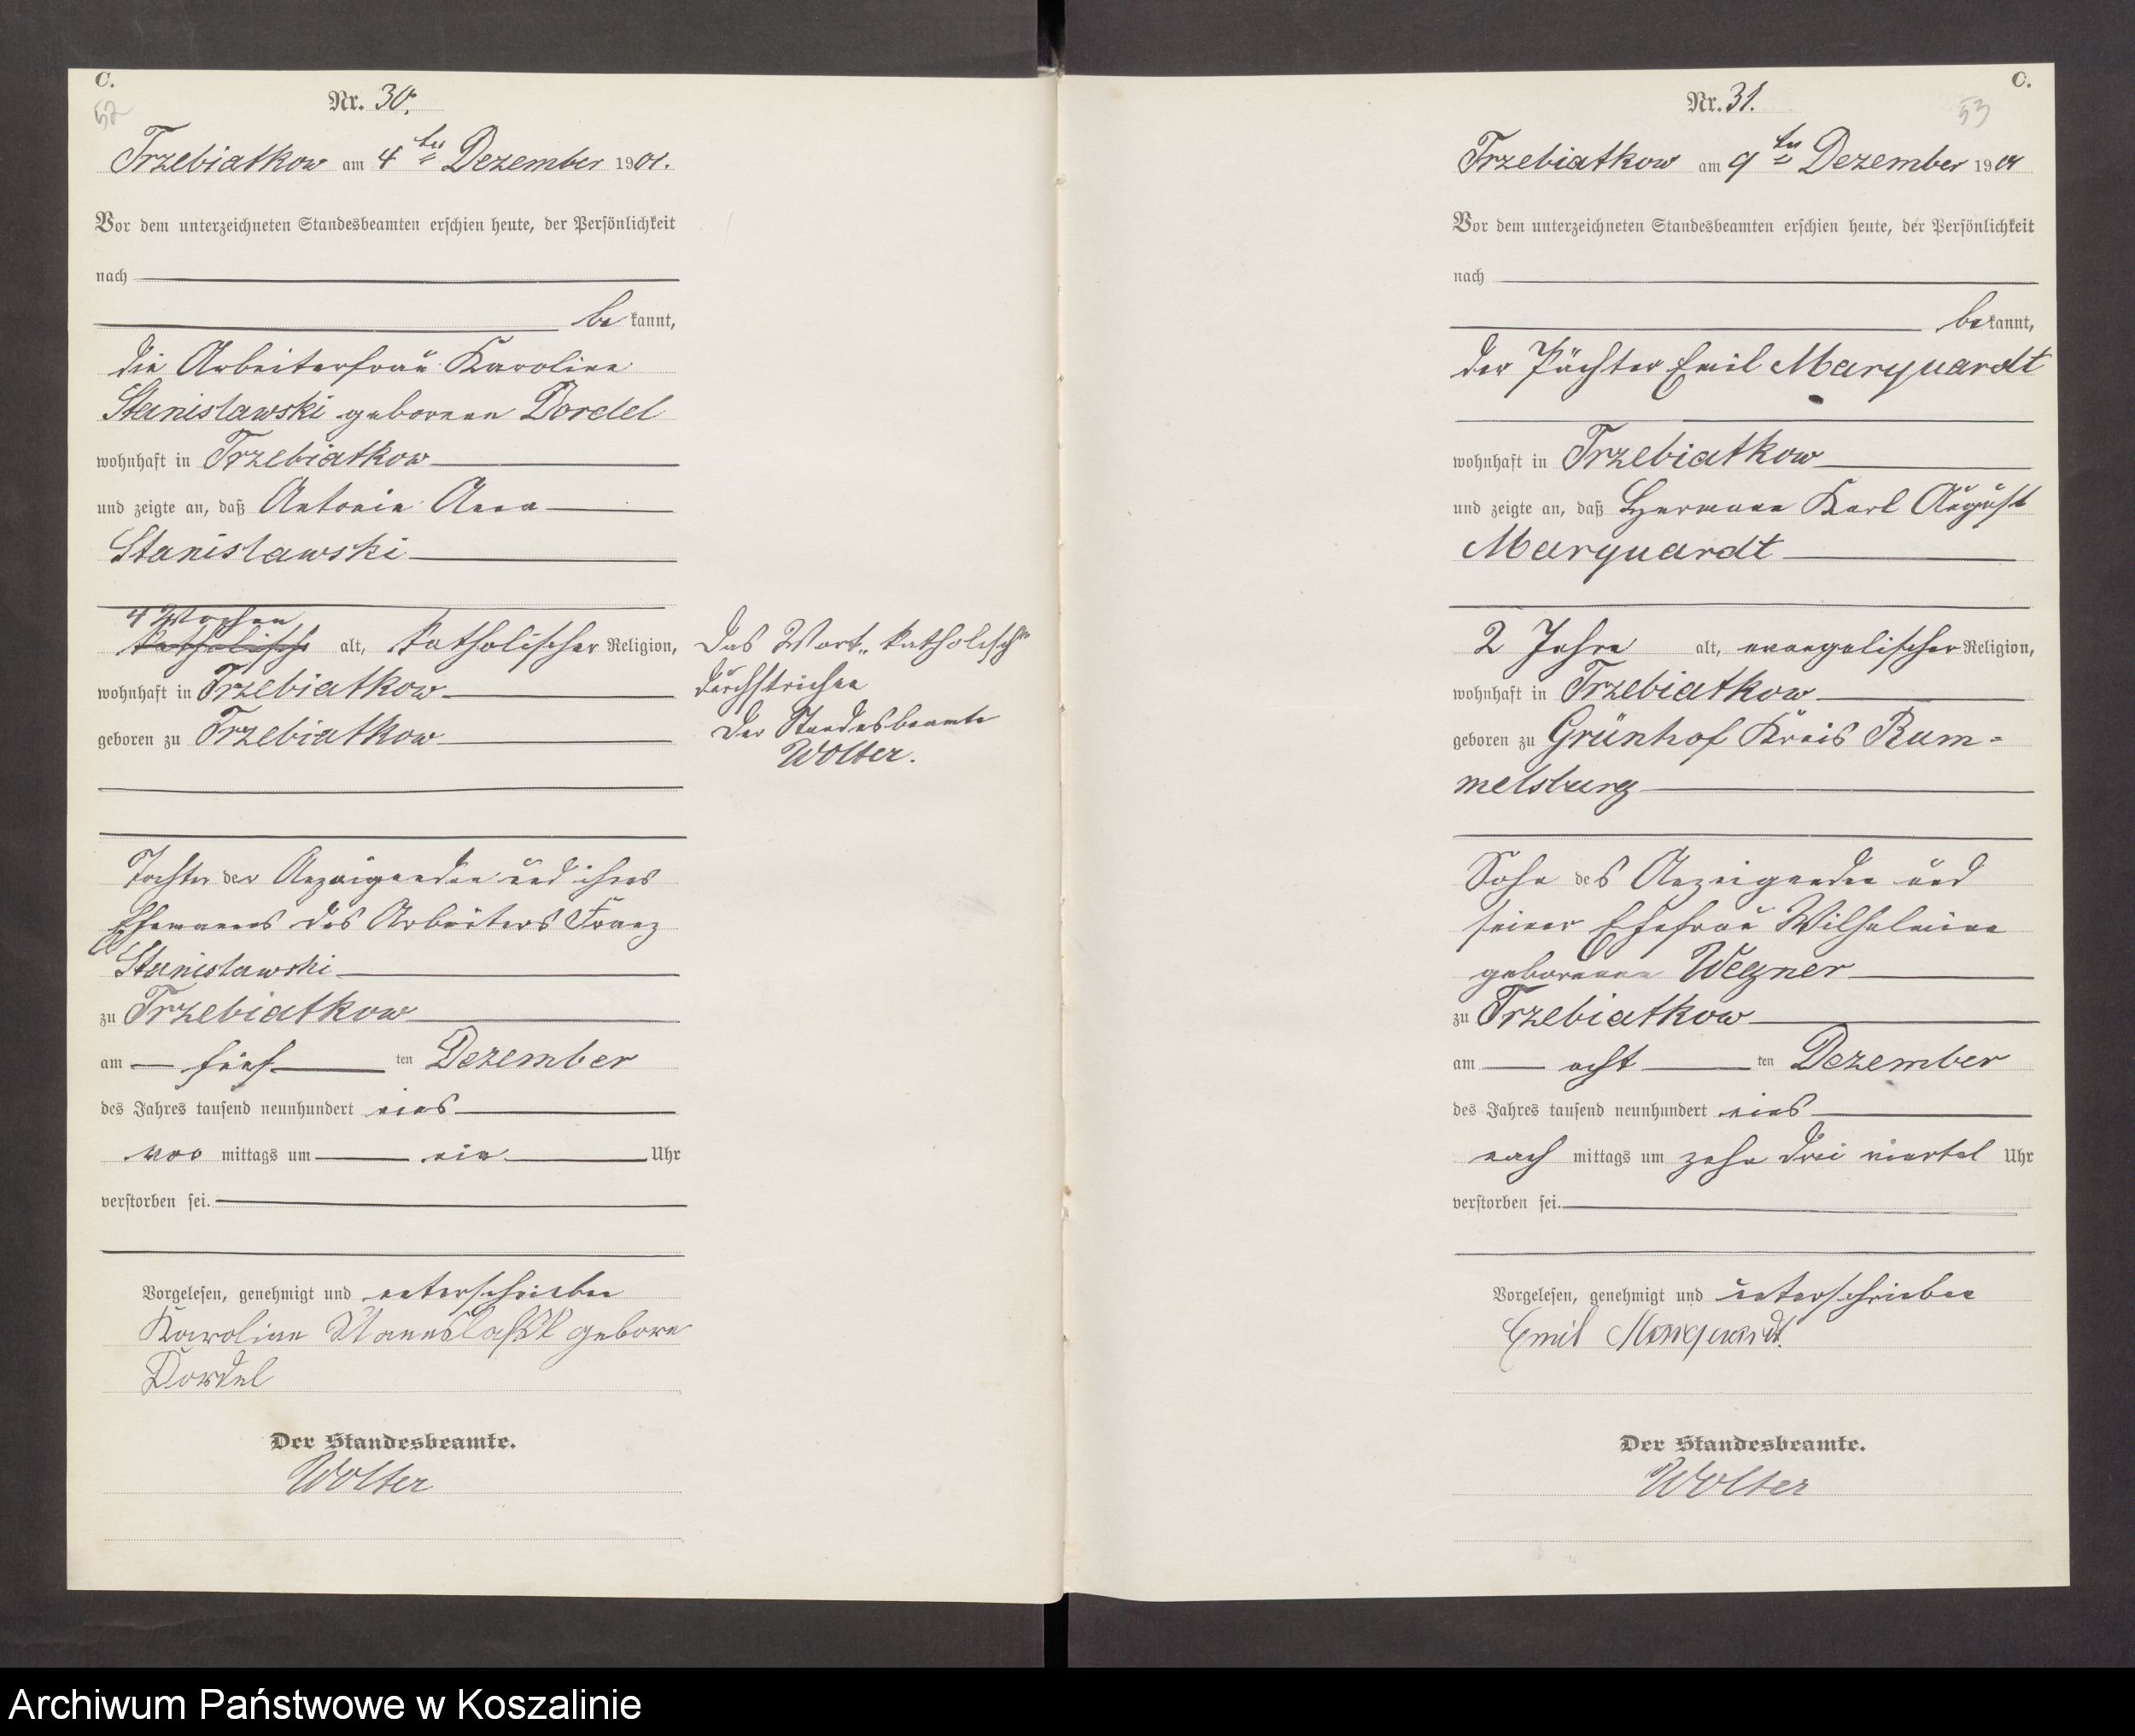 C.
52
Nr. 30.
Trzebiatkow am 4ten Dezember 1901.
Vor dem unterzeichneten Standesbeamten erschien heute, der Persönlichkeit
nach
bekannt,
die Arbeiterfrau Karoline
Stanislawski geborene Dordel
wohnhaft in Trzebiatkow
und zeigte an, daß Antonie Anna
Stanislawski
4 Wochen
katholisch alt, katholischer Religion,
wohnhaft in Trzebiatkow
geboren zu Trzebiatkow
Tochter der Anzeigenden und ihres
Ehemannes des Arbeiters Franz
Stanislawski
zu Trzebiatkow
am fünf ten Dezember
des Jahres tausend neunhundert eins
vor mittags um ein Uhr
verstorben sei.
Vorgelesen, genehmigt und unterschrieben
Karoline geborn
Dordel
Der Standesbeamte.
Wolter
Das Wort „katholisch“
durchstrichen
Der Standesbeamte
Wolter.
C.
53
Nr. 31.
Trzebiatkow am 9ten Dezember 1901
Vor dem unterzeichneten Standesbeamten erschien heute, der Persönlichkeit
nach
bekannt,
der Pächter Emil Marquardt
wohnhaft in Trzebiatkow
und zeigte an, daß Hermann Karl August
Marquardt
2 Jahre alt, evangelischer Religion,
wohnhaft in Trzebiatkow
geboren zu Grünhof Kreis Rum-
melsburg
Sohn des Anzeigenden und
seiner Ehefrau Wilhelmine
geborenen Wegner
zu Trzebiatkow
am acht ten Dezember
des Jahres tausend neunhundert eins
nach mittags um zehn drei viertel Uhr
verstorben sei.
Vorgelesen, genehmigt und unterschrieben
Emil Marquardt.
Der Standesbeamte.
Wolter
Archiwum Państwowe w Koszalinie